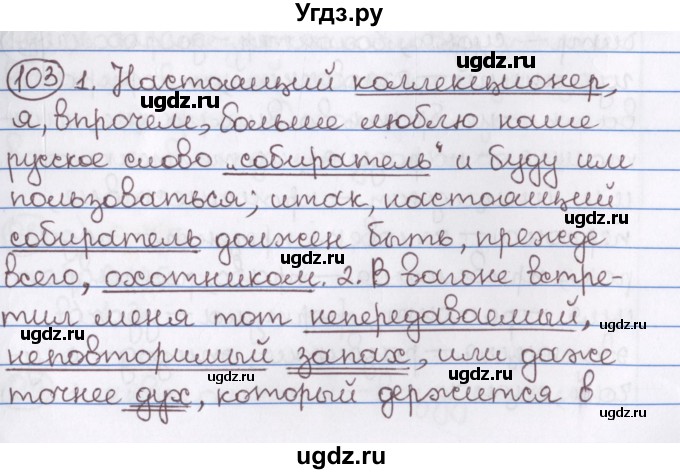 Угдз.ру
gdz.ru
103 1. Настоящий коллекционер,
gdz.ru
я, впрочем, больше люблю наше
gdz.ru
русское слово „собиратель" и буду им
пользоваться; итак, настоящий
gdz.ru
собиратель должен быть, прежде
всего, охотником. 2. В вагоне встре-
gdz.ru
тил меня тот непередаваемый,
gdz.ru
неповторимый запах, или даже
gdz.ru
точнее дух, который держится в
gdz.ru